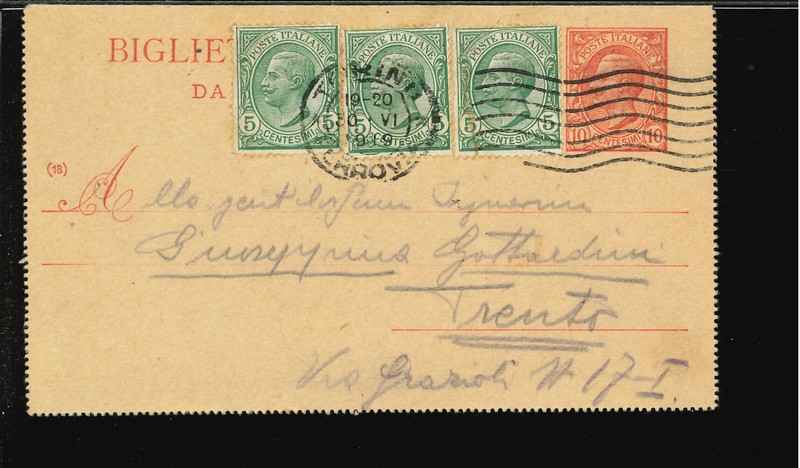 BIGLIE
DA
POSTE ITALIANE
5 CENTESIMI 5
POSTE ITALIANE
5 CENTESIMI 5
POSTE ITALIANE
5 CENTESIMI 5
POSTE ITALIANE
10 CENTESIMI 10
TORINO
19-20
30 VI
FERROVIA
(18)
Alla
Giuseppina Gottardini
Trento
Via Grazioli N 17-I.